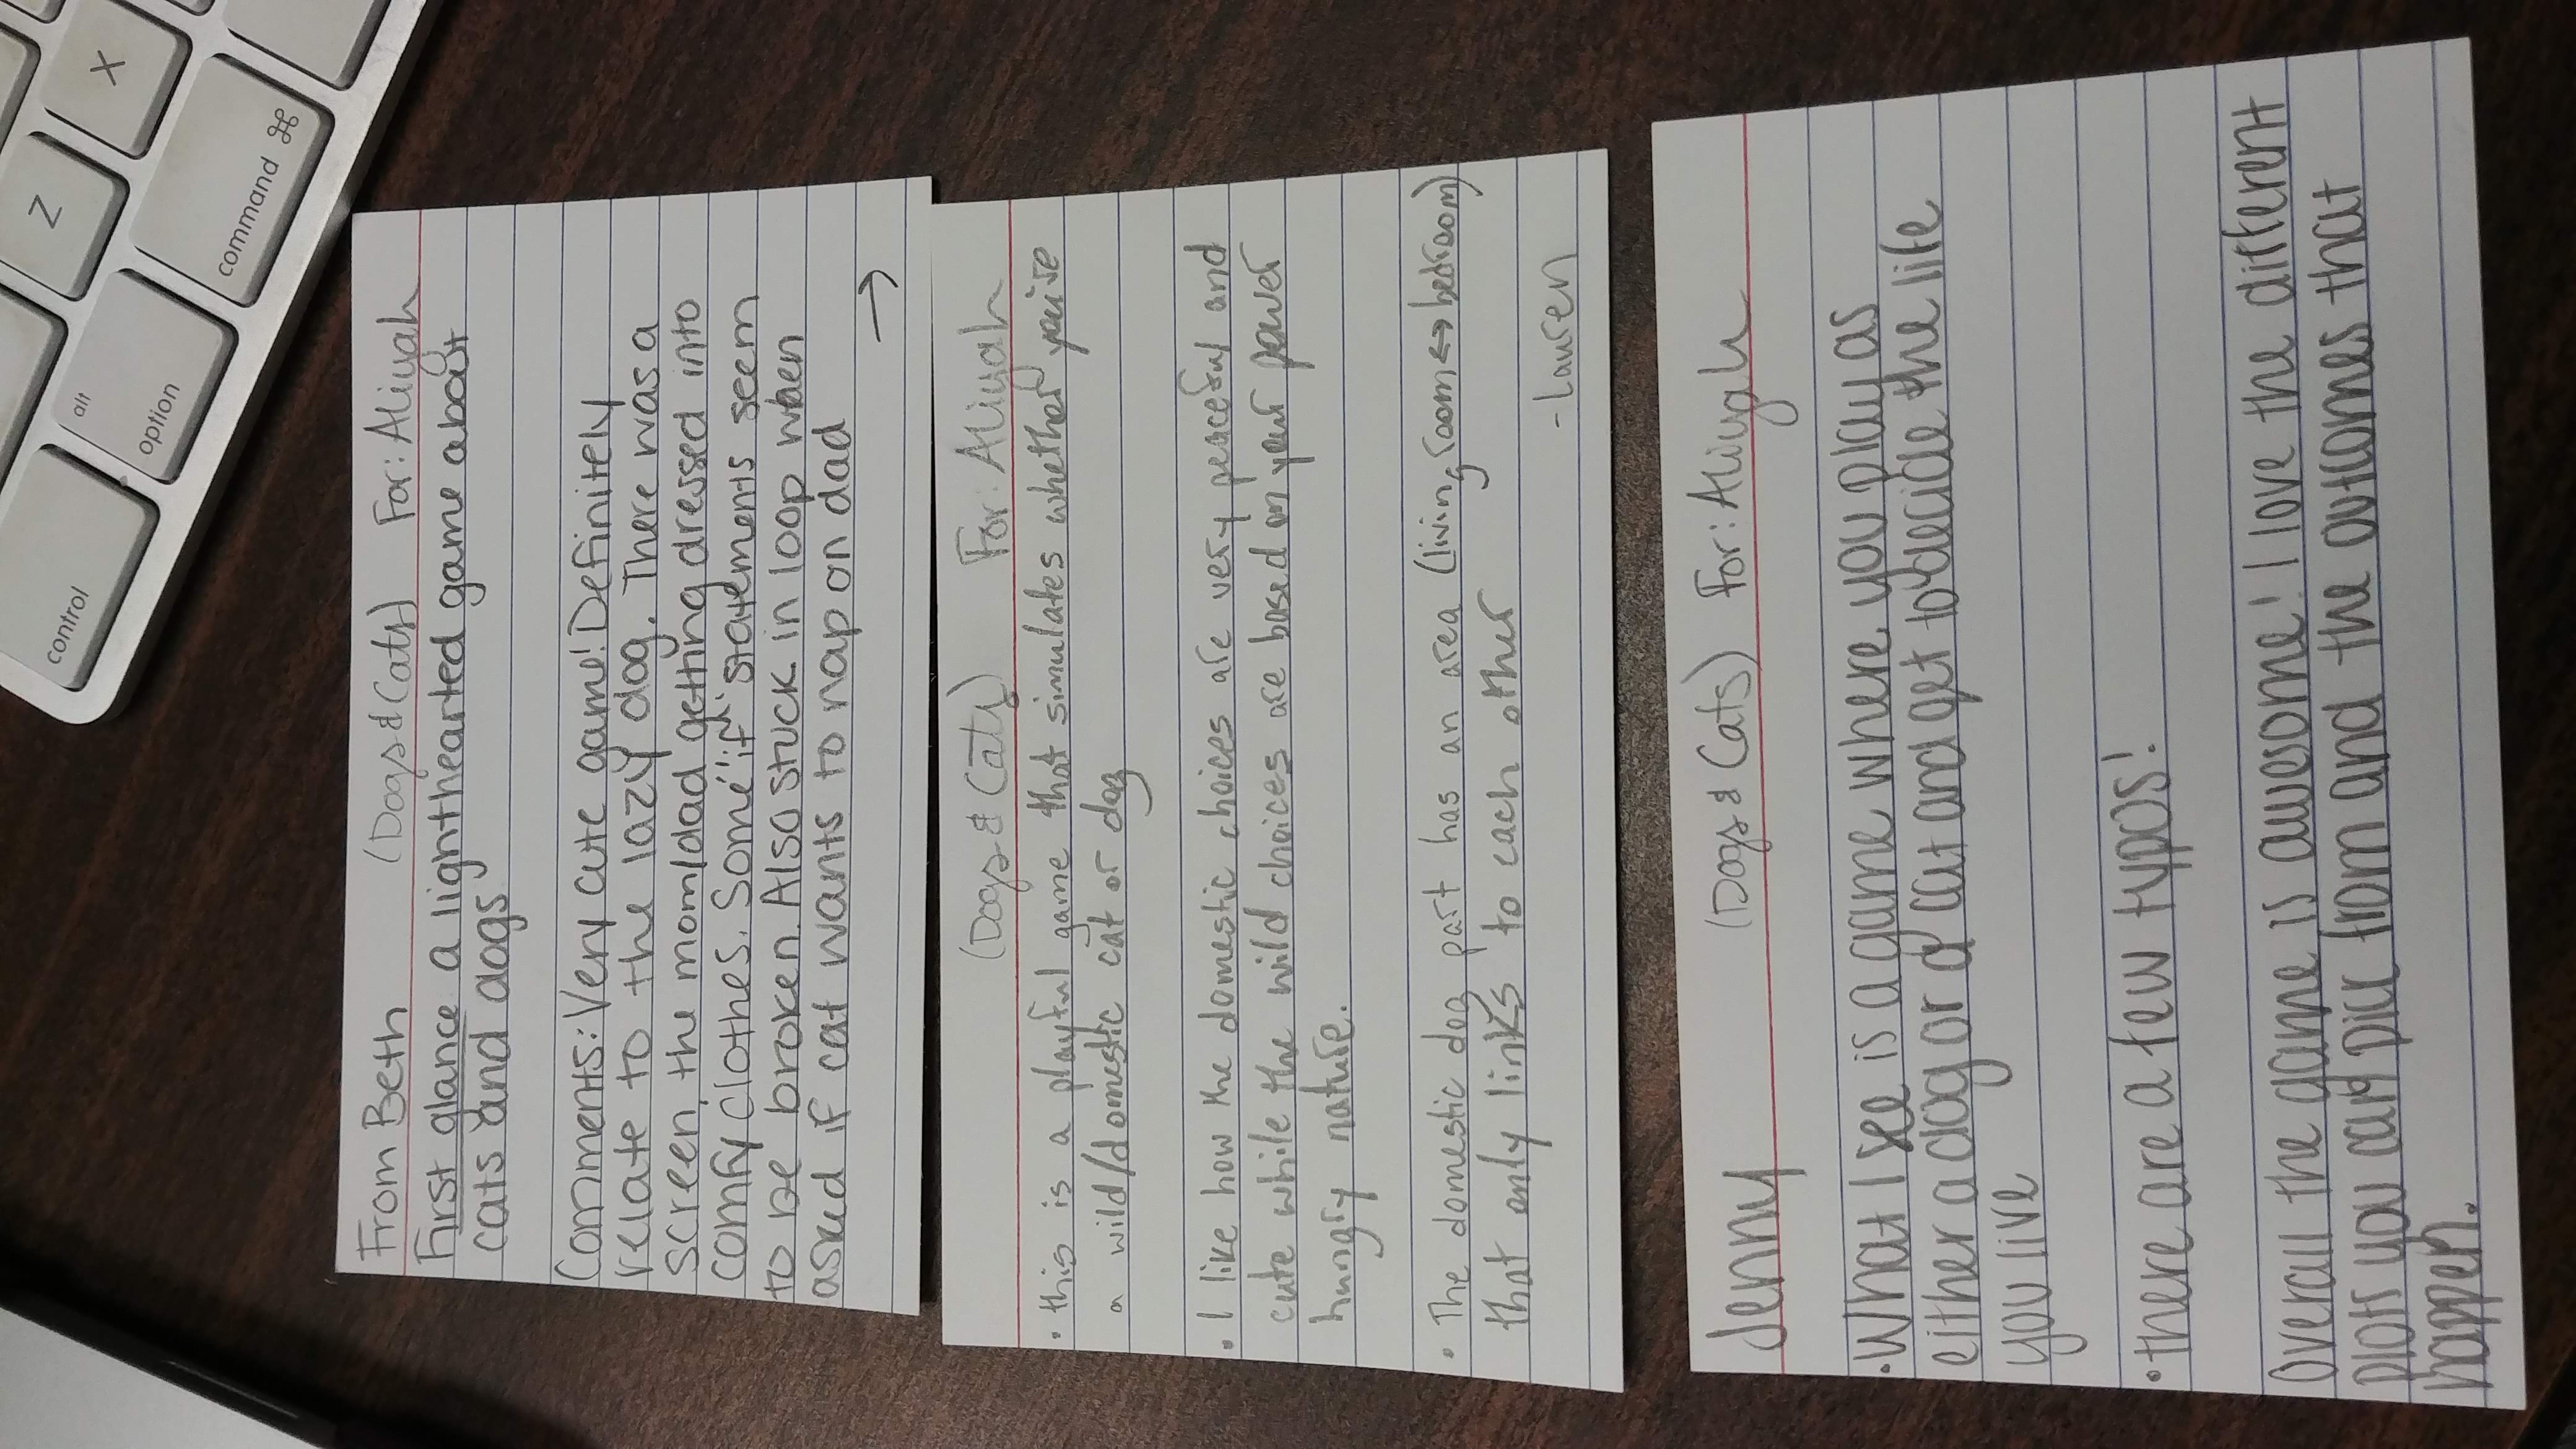 control
alt
option
Z
X
command ⌘
From Beth (Dogs & Cats) For: Aliyah
First glance a lighthearted game about
cats and dogs
Comments: Very cute game! Definitely
relate to the lazy dog. There was a
screen, the mom/dad getting dressed into
comfy clothes. Some "if" statements seem
to be broken. Also stuck in loop when
asked if cat wants to nap on dad
→
(Dogs & Cats) For: Aliyah
• this is a playful game that simulates whether you're
a wild/domestic cat or dog
• I like how the domestic choices are very peaceful and
cute while the wild choices are based on your power
hungry nature.
• The domestic dog part has an area (living room ↔ bedroom)
that only links to each other
- Lauren
Jenny (Dogs & Cats) For: Aliyah
• What I see is a game where you play as
either a dog or a cat and get to decide the life
you live
• there are a few typos!
Overall the game is awesome! I love the different
plots you can pick from and the outcomes that
happen.